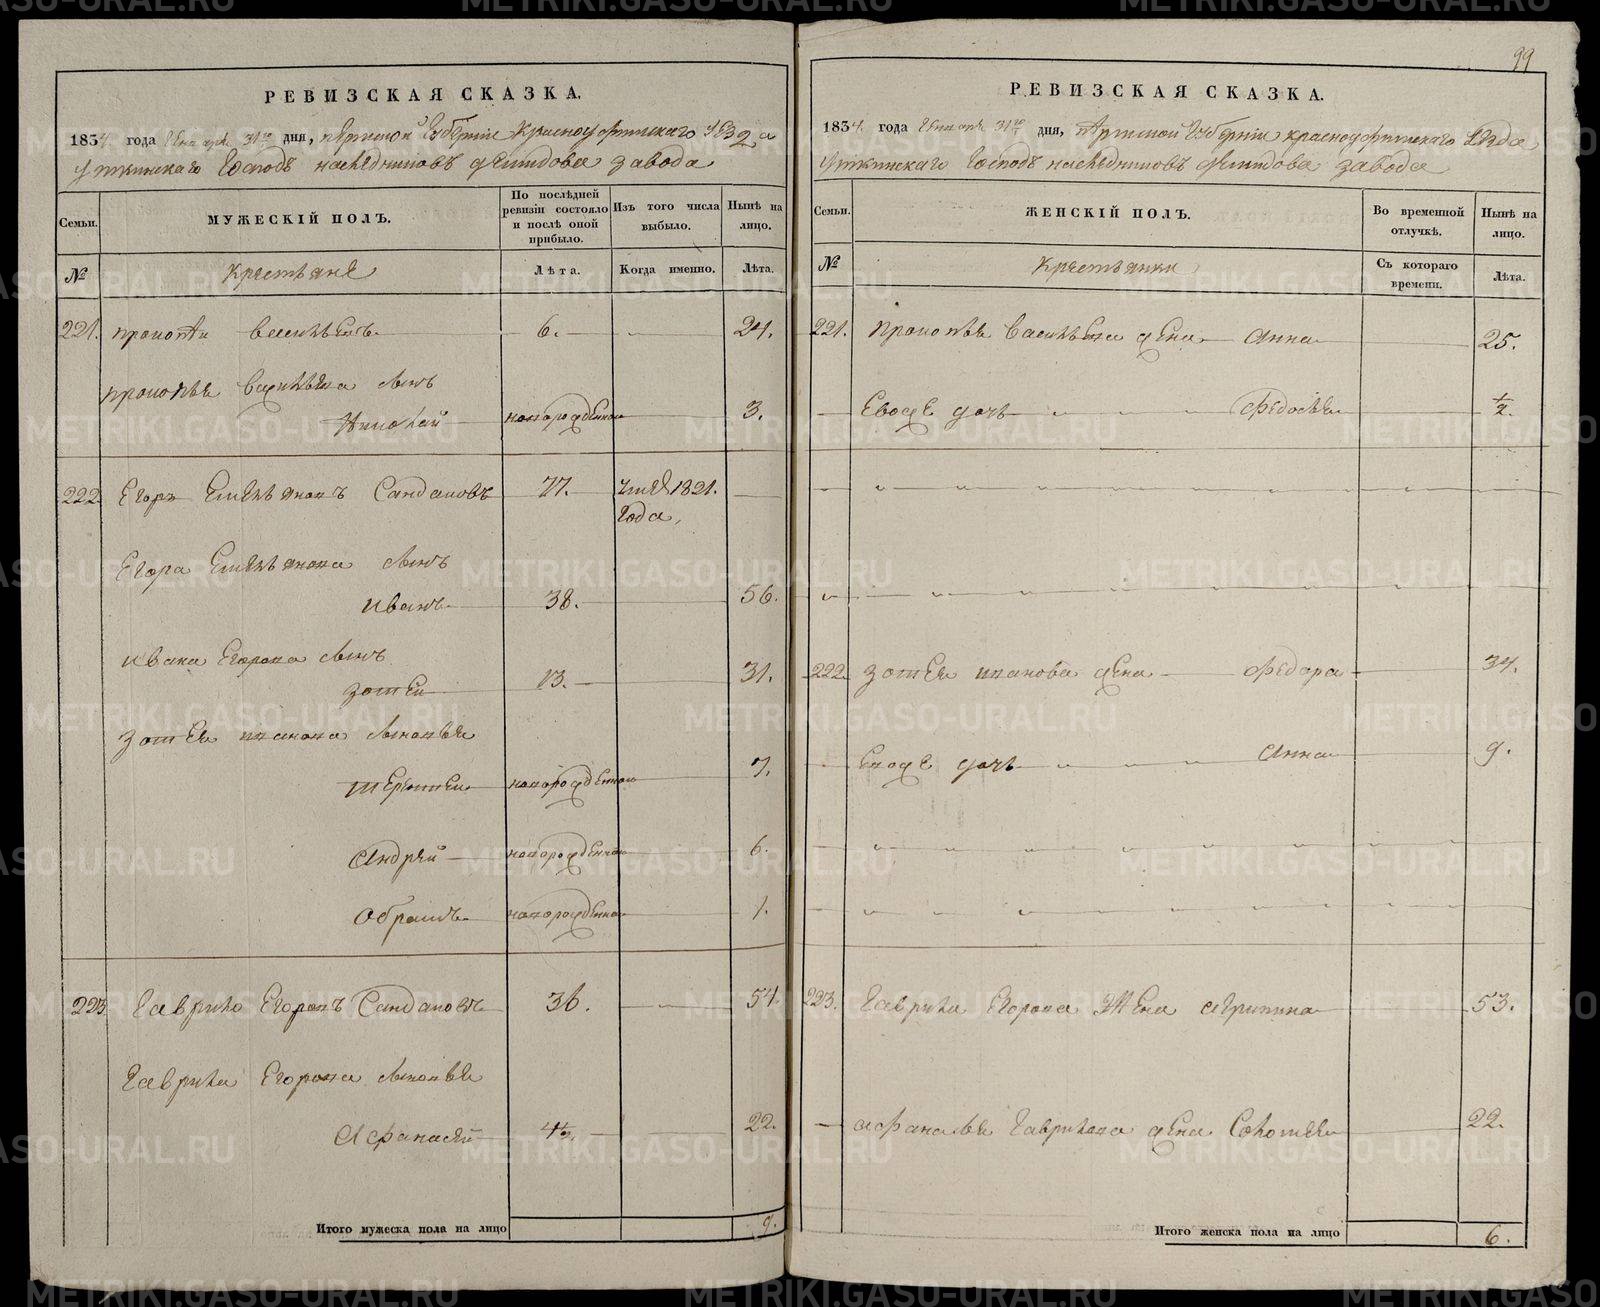 99
РЕВИЗСКАЯ СКАЗКА.
1834. года Генваря 31го дня, Пермской Губернии Красноуфимскаго уезда
Уткинскаго Господъ наследниковъ Демидова завода
Семьи.
МУЖЕСКІЙ ПОЛЪ.
По послѣдней ревизіи состояло и послѣ оной прибыло.
Изъ того числа выбыло.
Нынѣ на лицо.
№
Крестьяне
Лѣта.
Когда именно.
Лѣта.
221. Прокопѣй Васильевъ 6. 24.
Прокопья Васильева сынъ
Николай новорожденной 3.
222. Егоръ Емельяновъ Сандаковъ 77. умеръ 1821.
года,
Егора Емельянова сынъ
Иванъ 38. 56.
Ивана Егорова сынъ
Зотей 13. 31.
Зотея Иванова сыновья
Терентей новорожденной 7.
Андрей новорожденной 6.
Обрамъ новорожденной 1.
223. Гаврило Егоровъ Сандаковъ 36. 54.
Гаврила Егорова сыновья
Афанасей 4½. 22.
Итого мужеска пола на лицо 9.
РЕВИЗСКАЯ СКАЗКА.
1834. года Генваря 31го дня, Пермской Губернии Красноуфимскаго уезда
Уткинскаго Господъ наследниковъ Демидова завода
Семьи.
ЖЕНСКІЙ ПОЛЪ.
Во временной отлучкѣ.
Нынѣ на лицо.
№
Крестьянки
Съ котораго времени.
Лѣта.
221. Прокопья Васильева жена Анна 25.
Евоже дочь Федосья ½.
222. Зотея Иванова жена Федора 34.
Евоже дочь Анна 9.
223. Гаврила Егорова Жена Агрипина 53.
Афанасья Гаврилова жена Соломея 22.
Итого женска пола на лицо 6.
METRIKI.GASO-URAL.RU